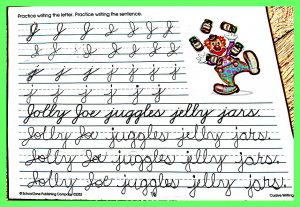 Practice writing the letter. Practice writing the sentence.
J J J J J J J
J J J J J J J
j j j j j j j
j j j j j j j
Jolly Joe juggles jelly jars.
Jolly Joe juggles jelly jars.
Jolly Joe juggles jelly jars.
Jolly Joe juggles jelly jars.
Cursive Writing